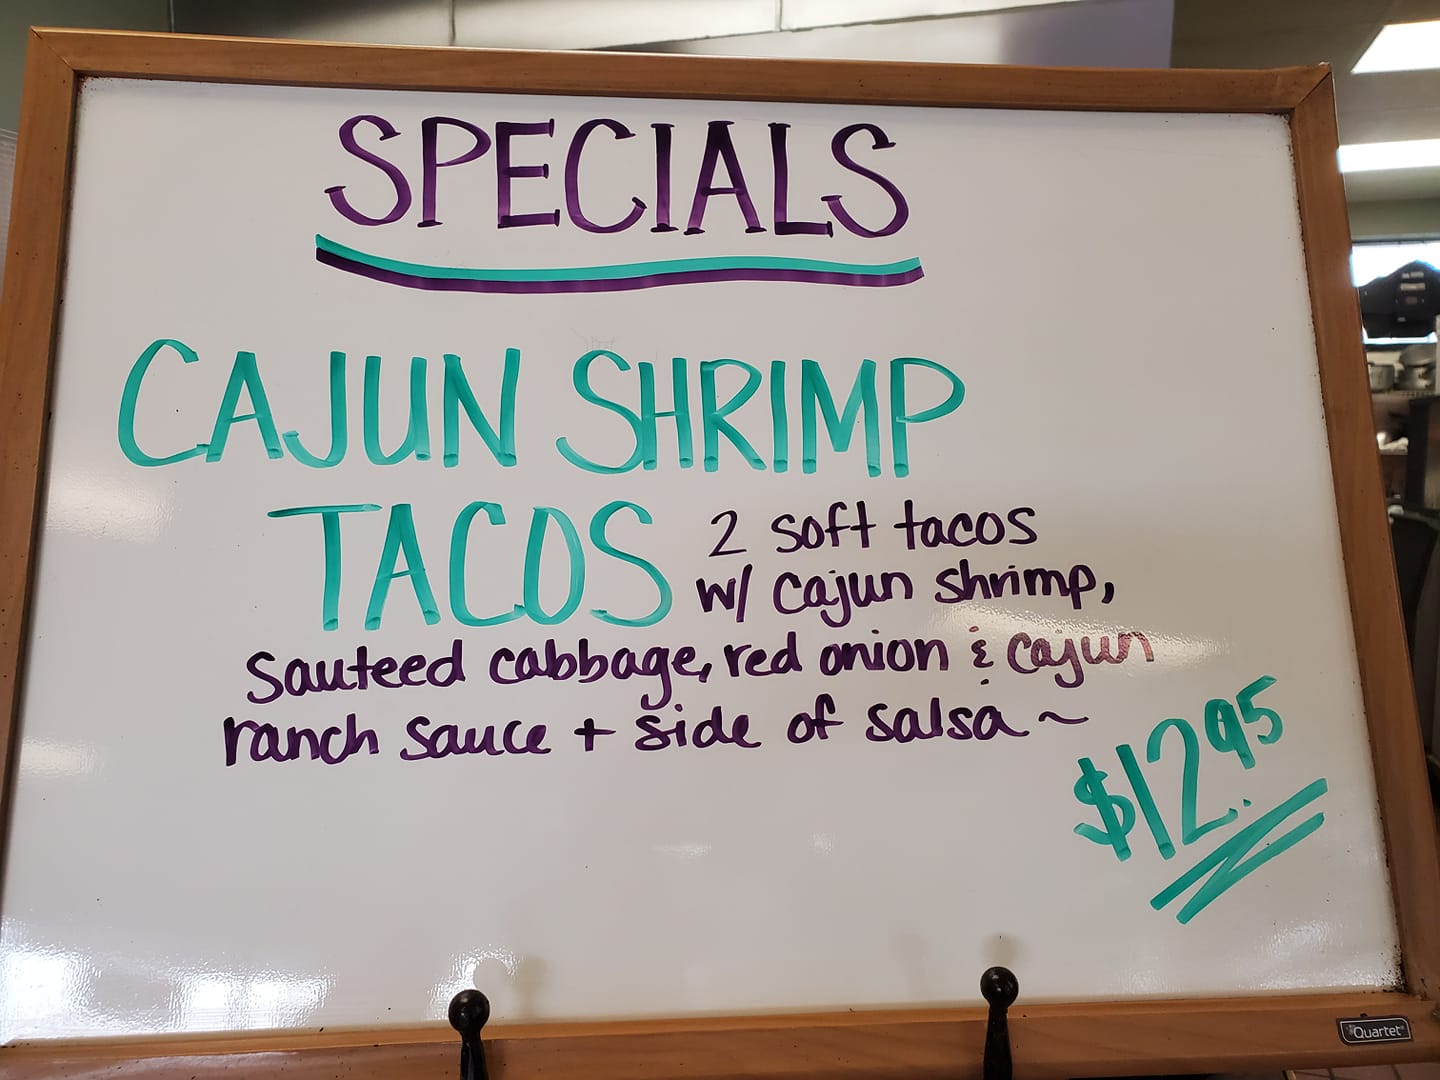 SPECIALS
CAJUN SHRIMP
TACOS
2 soft tacos
w/ cajun shrimp,
sauteed cabbage, red onion & cajun
ranch sauce + side of salsa ~
$12.95
Quartet